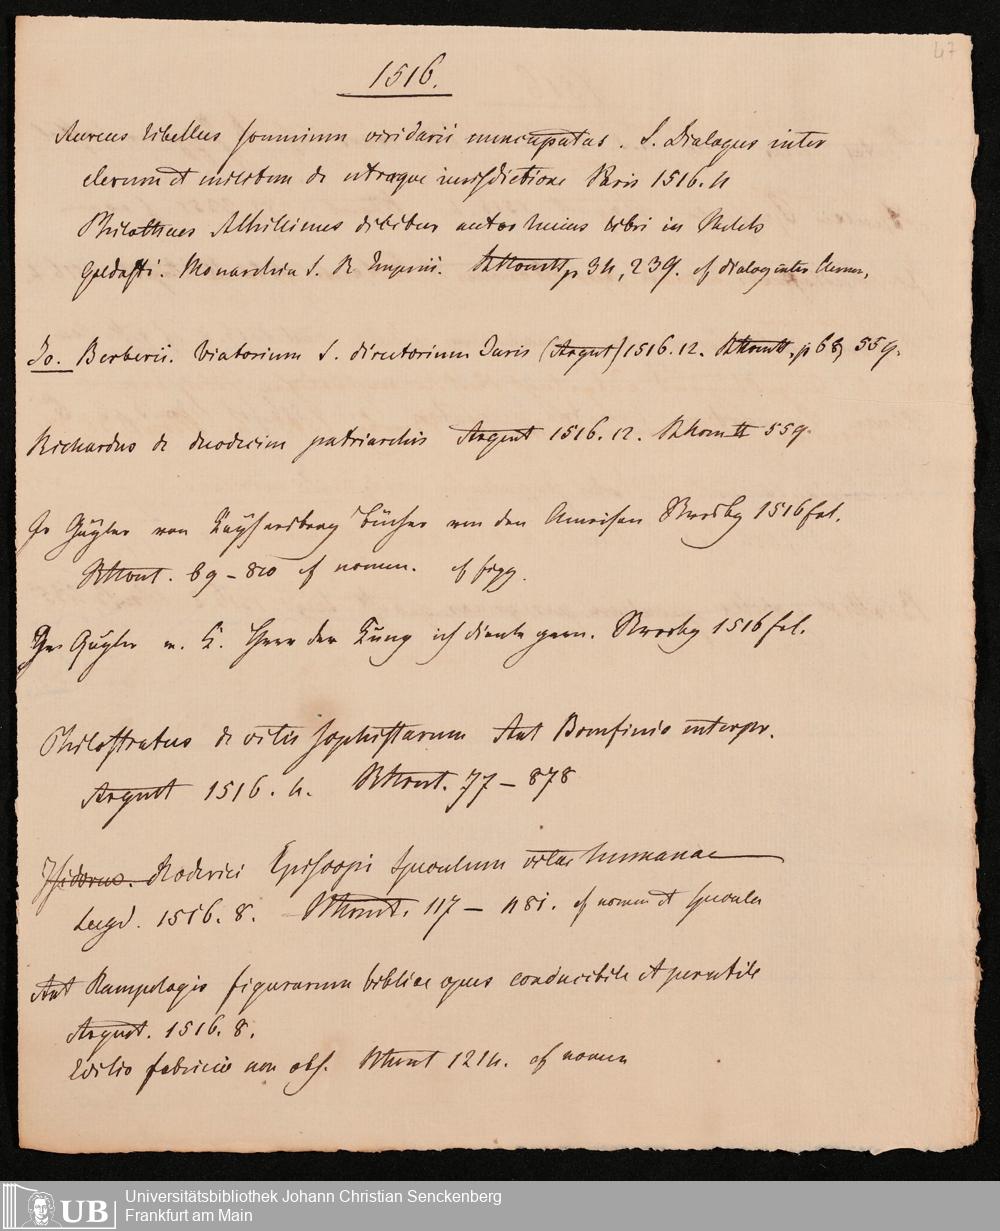 47
1516.
Aureus libellus somnium viridarii nuncupatus. S. Dialogus inter
clerum et militem de utraque iurisdictione Paris 1516. 4
Philotheus Achillinus dicitur autor huius libri in Melch
Goldasti. Monarchia S. R Imperii. p 34, 239. cf dialog inter Clerum,
Jo. Berberii. Viatorium S. directorium Juris (Argent) 1516. 12. p 68, 559.
Richardus de duodecim patriarchis Argent 1516. 12. 559.
Jo Gayler von Kaysersberg Bücher von den Omeisen Strasbg 1516 fol.
69 – 810 cf nomen. cf
Gayler v. K. Herr der Küng ich diente gern. Strasbg 1516 fol.
Philostratus de vitis sophistarum Ant Bonfinio interpr.
Argent 1516. 4. 77 – 878
Isidorus. Roderici Episcopi speculum vitae humanae
Lugd. 1516. 8. 117 – 1181. cf nomen et specula
Ant Rampelogis figurarum bibliae opus conducibile et perutile
Argent. 1516. 8.
Editio fabricio non obs. 1214. cf nomen
Universitätsbibliothek Johann Christian Senckenberg
Frankfurt am Main
UB